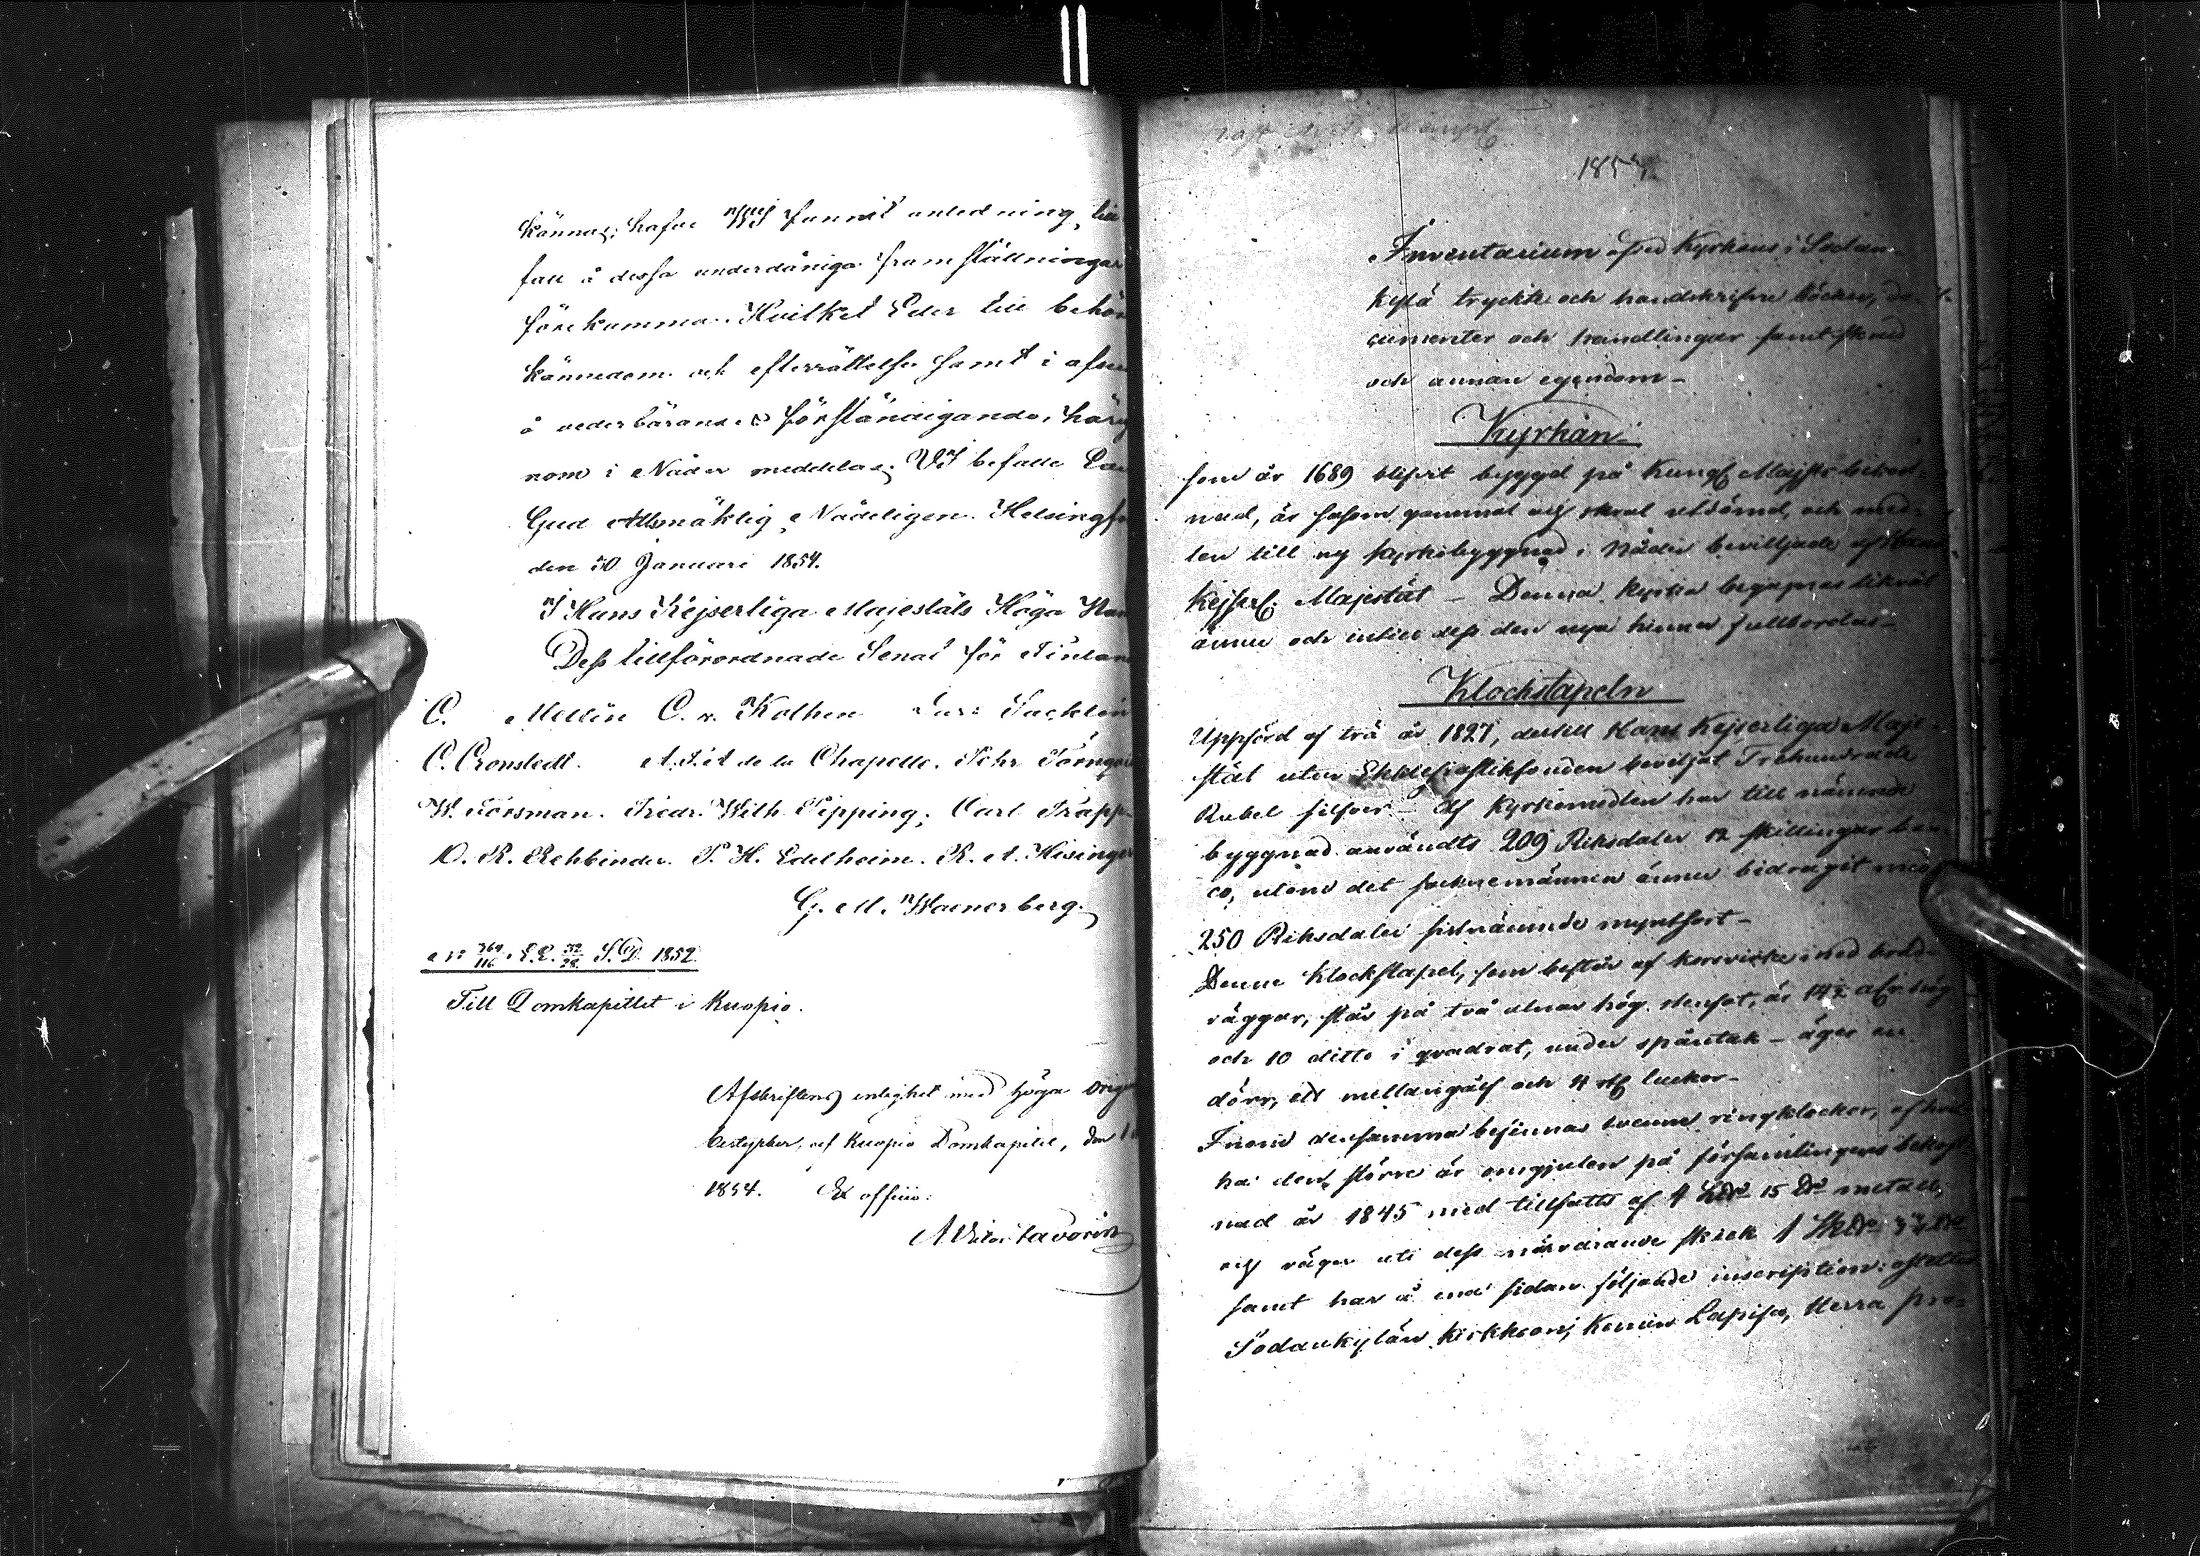 kännas; hafve WI funnit anledning till
fall å dessa underdåniga framställningar
förekomma. Hvilket Eder till behör
kännedom och efterrättelse samt i afse
å vederbörandes förständigande, här
nom i Nåder meddelas; VI befalle Ed
Gud Allsmäktig Nådeligen. Helsingf
den 30 Januari 1854.
I Hans Kejserliga Majestäts Höga Na
Dess tillförordnade Senat för Finlan
C. Mellin C. v. Kothen Lars Sacklén
C. Cronstedt. A. F. A. de la Chapelle. Fehr Törngre
W. Forsman. Fredr. Wilh. Pipping. Carl Trapp
O. R. Rehbinder. P. H. Edelheim. R. A. Hisinge
G. M. Waenerberg.
N:o 369/116 E.E. 32/28 S.D. 1852
Till Domkapitlet i Kuopio.
Afskriftens enlighet med höga orig
betyger, af Kuopio Domkapitel, den
1854. Ex officio:
1854
Inventarium öfver Kyrkans i Sodan
kylä tryckte och handskrifne böcker, do
cumenter och handlingar samt skrud
och annan egendom-
Kyrkan
som år 1689 blifvit byggd på Kungl. Majsts bekost
nad, är såsom gammal och skral utdömd, och med
len till ny kyrkobyggnad i Nåder beviljade af Hans
Kejserl. Majestät - Denna kyrka begagnas likväl
ännu och intill dess den nya hinner fullbordas-
Klockstapeln
Uppförd af trä år 1827, dertill Hans Kejserliga Maje
stät utur Ecklesiastikfonden beviljat Trehundrade
Rubel silfver - Af Kyrkomedlen har till nämnde
byggnad användts 209 Riksdaler 12 skillingar ban
co, utom det socknemännen ännu bidragit med
250 Riksdaler sistnämnde myntsort-
Denne klockstapel, som består af korsvirke med bräd
väggar, står på två alnar hög stenfot, är 14½ alnar hög
och 10 ditto i qvadrat, under spåntak - äger en
dörr, ett mellangolf och 4 st luckor-
Inom densamma befinnas tvenne ringklockor, af hvil
ka den större är omgjuten på församlingens bekost
nad år 1845 med tillsatts af 4 LU 15 U metall,
och väger uti dess närvarande skick 1
samt har å ena sidan följande inscription:
Sodankylän kirkkoon, Kemin Lapisa, Herra pro